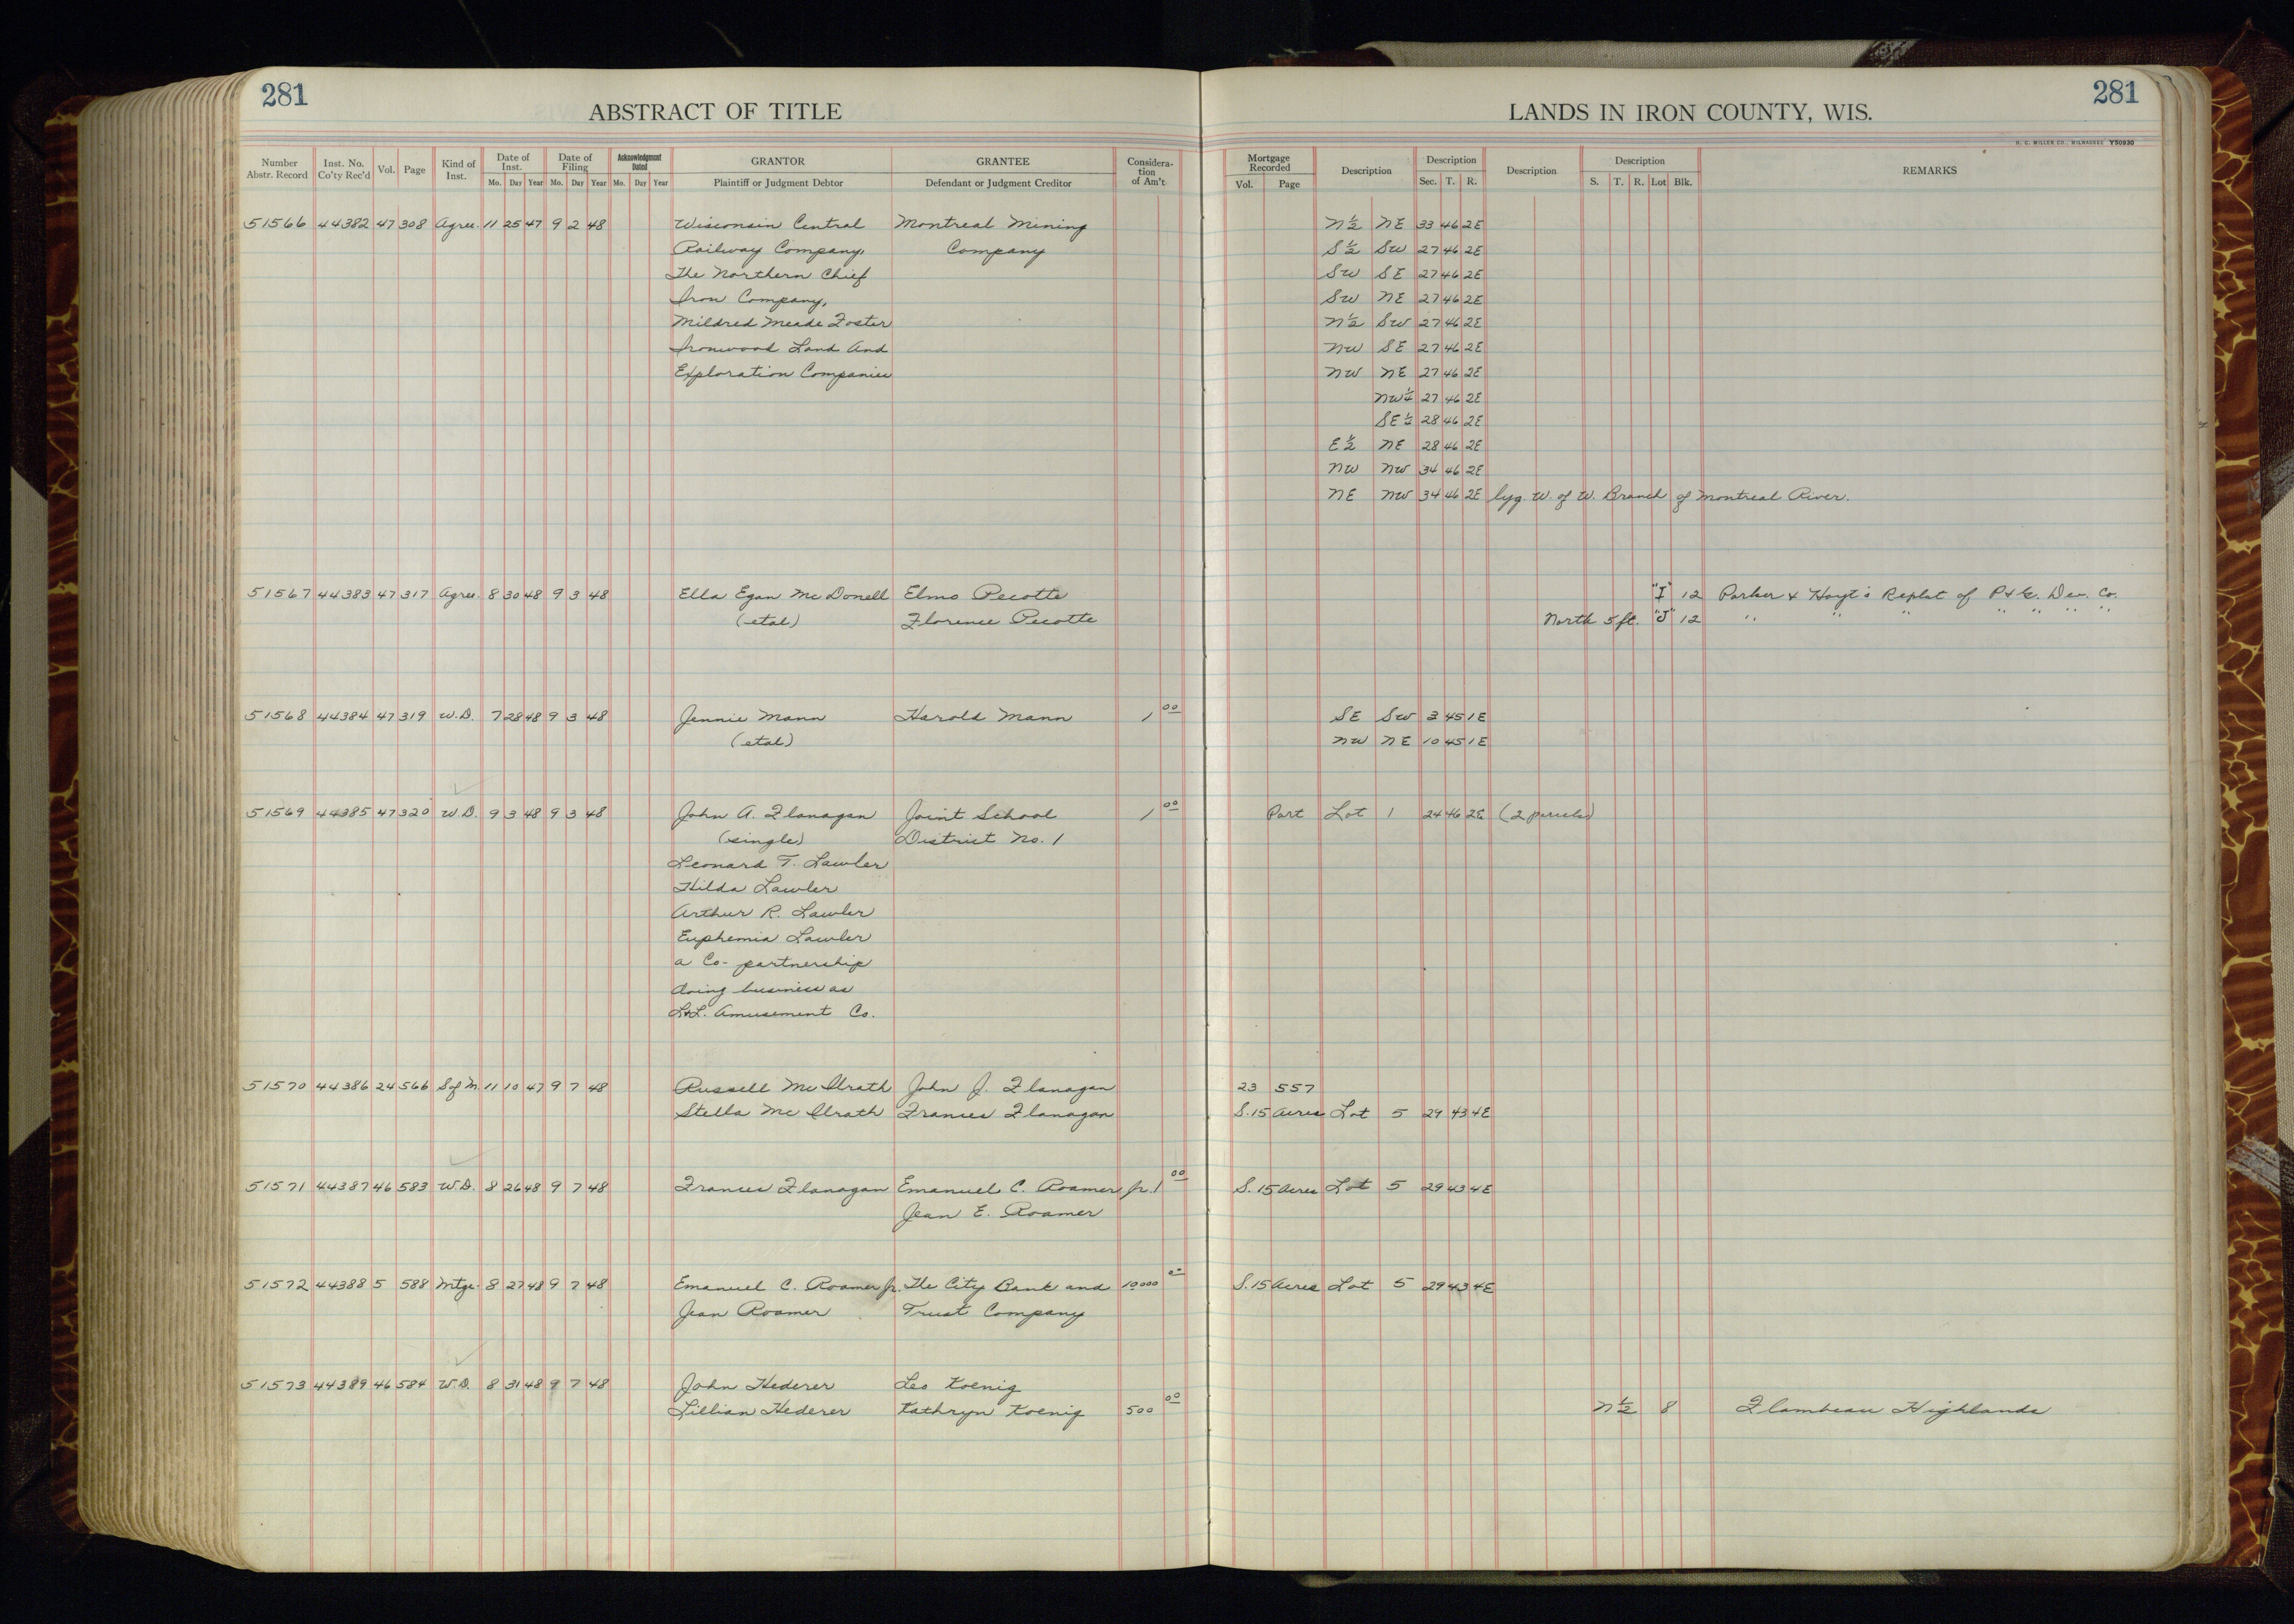 281
ABSTRACT OF TITLE
LANDS IN IRON COUNTY, WIS.
281
H. C. MILLER CO., MILWAUKEE Y50930
Number Abstr. Record Inst. No. Co'ty Rec'd Vol. Page Kind of Inst. Date of Inst. Mo. Day Year Date of Filing Mo. Day Year Acknowledgment Dated Mo. Day Year GRANTOR Plaintiff or Judgment Debtor GRANTEE Defendant or Judgment Creditor Considera-tion of Am't Mortgage Recorded Vol. Page Description Description Sec. T. R. Description Description S. T. R. Lot Blk. REMARKS
51566 44382 47 308 Agree. 11 25 47 9 2 48 Wisconsin Central Montreal Mining N½ NE 33 46 2E
Railway Company, Company S½ SW 27 46 2E
The Northern Chief SW SE 27 46 2E
Iron Company, SW NE 27 46 2E
Mildred Meade Foster N½ SW 27 46 2E
Ironwood Land And NW SE 27 46 2E
Exploration Companies NW NE 27 46 2E
NW¼ 27 46 2E
SE¼ 28 46 2E
E½ NE 28 46 2E
NW NW 34 46 2E
NE NW 34 46 2E lyg. W. of W. Branch of Montreal River.
51567 44383 47 317 Agree. 8 30 48 9 3 48 Ella Egan McDonell Elmo Pecotte "I" 12 Parker & Hoyt's Replat of P&G. Dev. Co.
(etal) Florence Pecotte North 5 ft. "J" 12 " " " " " " "
51568 44384 47 319 W.D. 7 28 48 9 3 48 Jennie Mann Harold Mann 1 00 SE SW 3 45 1E
(etal) NW NE 10 45 1E
51569 44385 47 320 W.D. 9 3 48 9 3 48 John A. Flanagan Joint School 1 00 Part Lot 1 24 46 2E (2 parcels)
(single) District No. 1
Leonard T. Lawler
Hilda Lawler
Arthur R. Lawler
Euphemia Lawler
a Co-partnership
doing business as
L&L. Amusement Co.
51570 44386 24 566 S of M. 11 10 47 9 7 48 Russell McIlrath John J. Flanagan 23 557
Stella McIlrath Frances Flanagan S. 15 Acres Lot 5 29 43 4E
51571 44387 46 583 W.D. 8 26 48 9 7 48 Frances Flanagan Emanuel C. Roamer Jr. 1 00 S. 15 Acres Lot 5 29 43 4E
Jean E. Roamer
51572 44388 5 588 Mtge. 8 27 48 9 7 48 Emanuel C. Roamer Jr. The City Bank and 10000 00 S. 15 Acres Lot 5 29 43 4E
Jean Roamer Trust Company
51573 44389 46 584 W.D. 8 31 48 9 7 48 John Hederer Leo Koenig
Lillian Hederer Kathryn Koenig 500 00 N½ 8 Flambeau Highlands